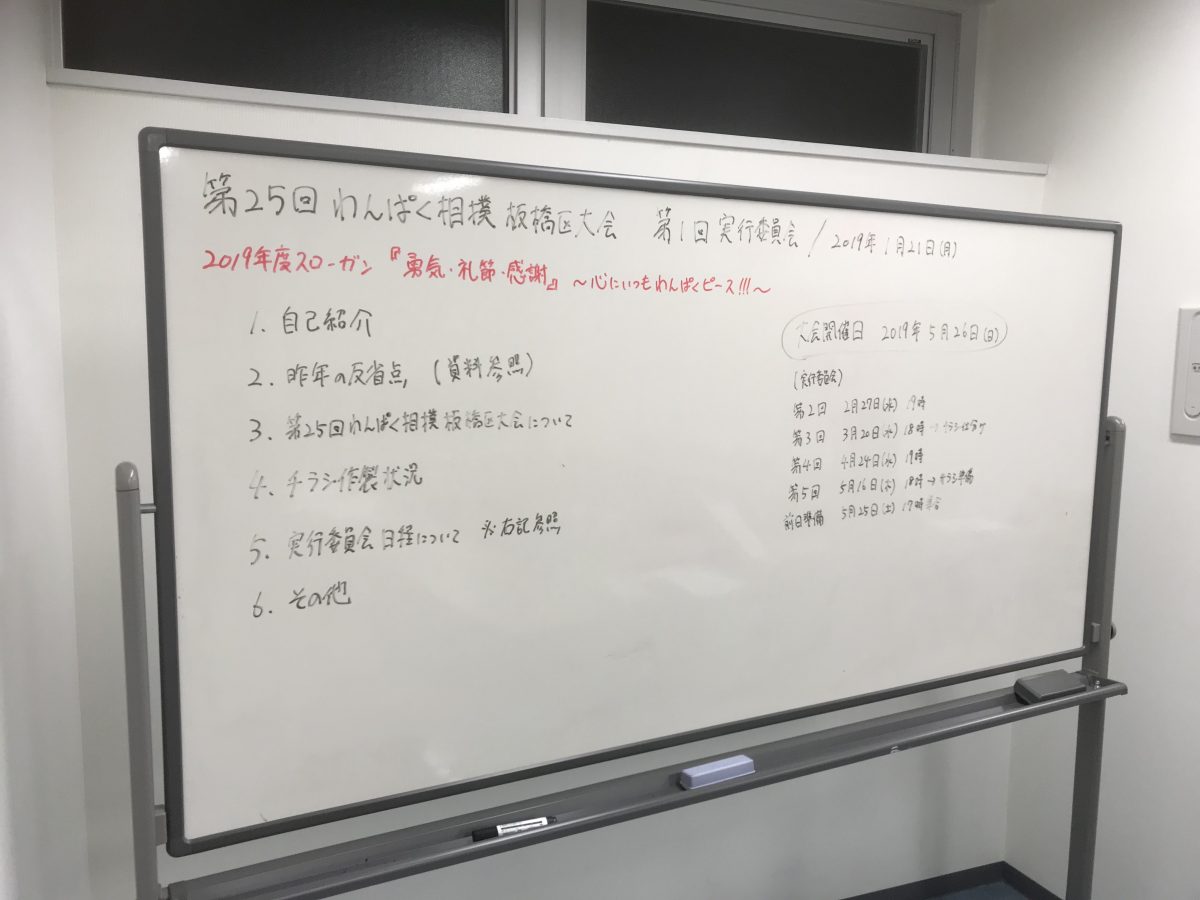 第25回 わんぱく相撲 板橋区大会 第1回 実行委員会 / 2019年 1月21日(月)
2019年度スローガン 『勇気・礼節・感謝』 〜心にいつもわんぱくピース!!!〜
1. 自己紹介
2. 昨年の反省点, (資料参照)
3. 第25回わんぱく相撲 板橋区大会について
4. チラシ作製状況
5. 実行委員会 日程について ※右記参照
6. その他
大会開催日 2019年 5月26日(日)
(実行委員会)
第2回 2月27日(水) 19時
第3回 3月20日(水) 18時 → チラシ仕分け
第4回 4月24日(水) 19時
第5回 5月16日(木) 18時 → チラシ準備
前日準備 5月25日(土) 17時集合